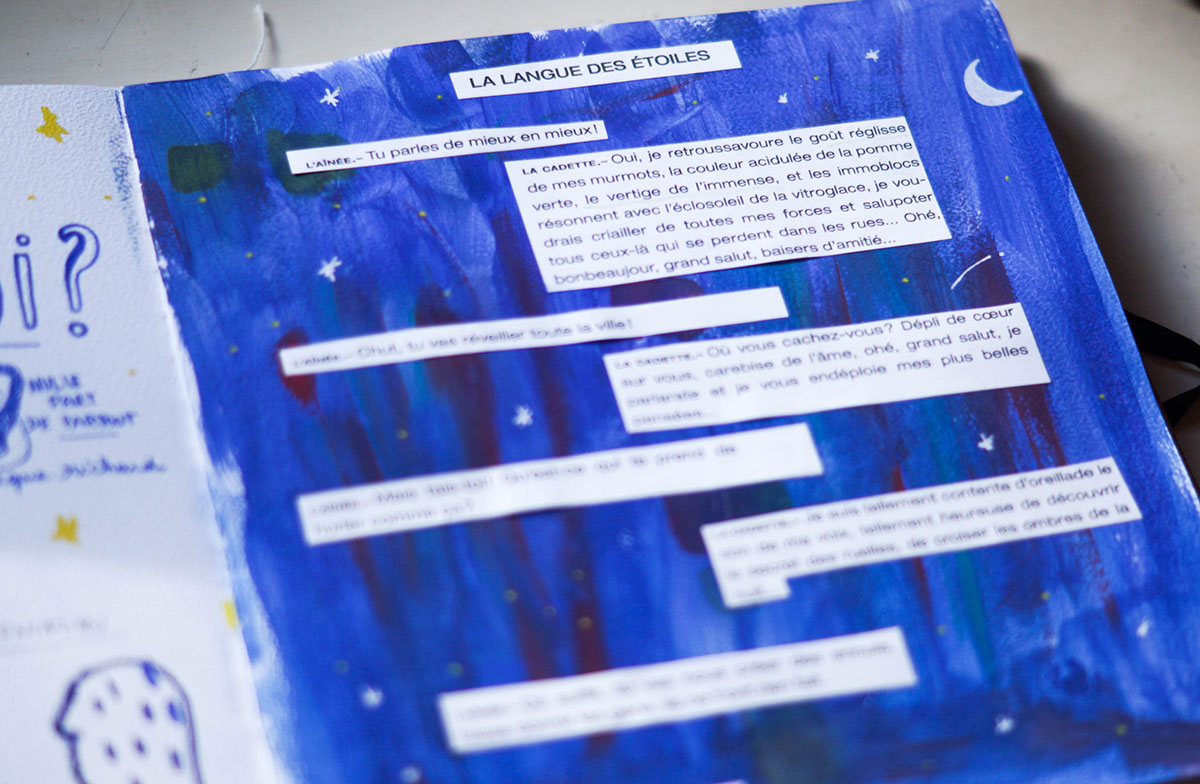 LA LANGUE DES ÉTOILES
L'AÎNÉE.– Tu parles de mieux en mieux !
LA CADETTE.– Oui, je retroussavoure le goût réglisse
de mes murmots, la couleur acidulée de la pomme
verte, le vertige de l'immense, et les immoblocs
résonnent avec l'éclosoleil de la vitroglace, je vou-
drais criailler de toutes mes forces et salupoter
tous ceux-là qui se perdent dans les rues... Ohé,
bonbeaujour, grand salut, baisers d'amitié...
L'AÎNÉE.– Chut, tu vas réveiller toute la ville !
LA CADETTE.– Où vous cachez-vous? Dépli de cœur
sur vous, carebise de l'âme, ohé, grand salut, je
parlerate et je vous endéploie mes plus belles
pensées...
L'AÎNÉE.– Mais tais-toi! Qu'est-ce qui te prend de
hurler comme ça?
LA CADETTE.– Je suis tellement contente d'oreillade le
son de ma voix, tellement heureuse de découvrir
le secret des ruelles, de croiser les ombres de la
nuit...
ça suffit, tu vas nous créer des ennuis,
?
NULLE
PART
DE PARTOUT